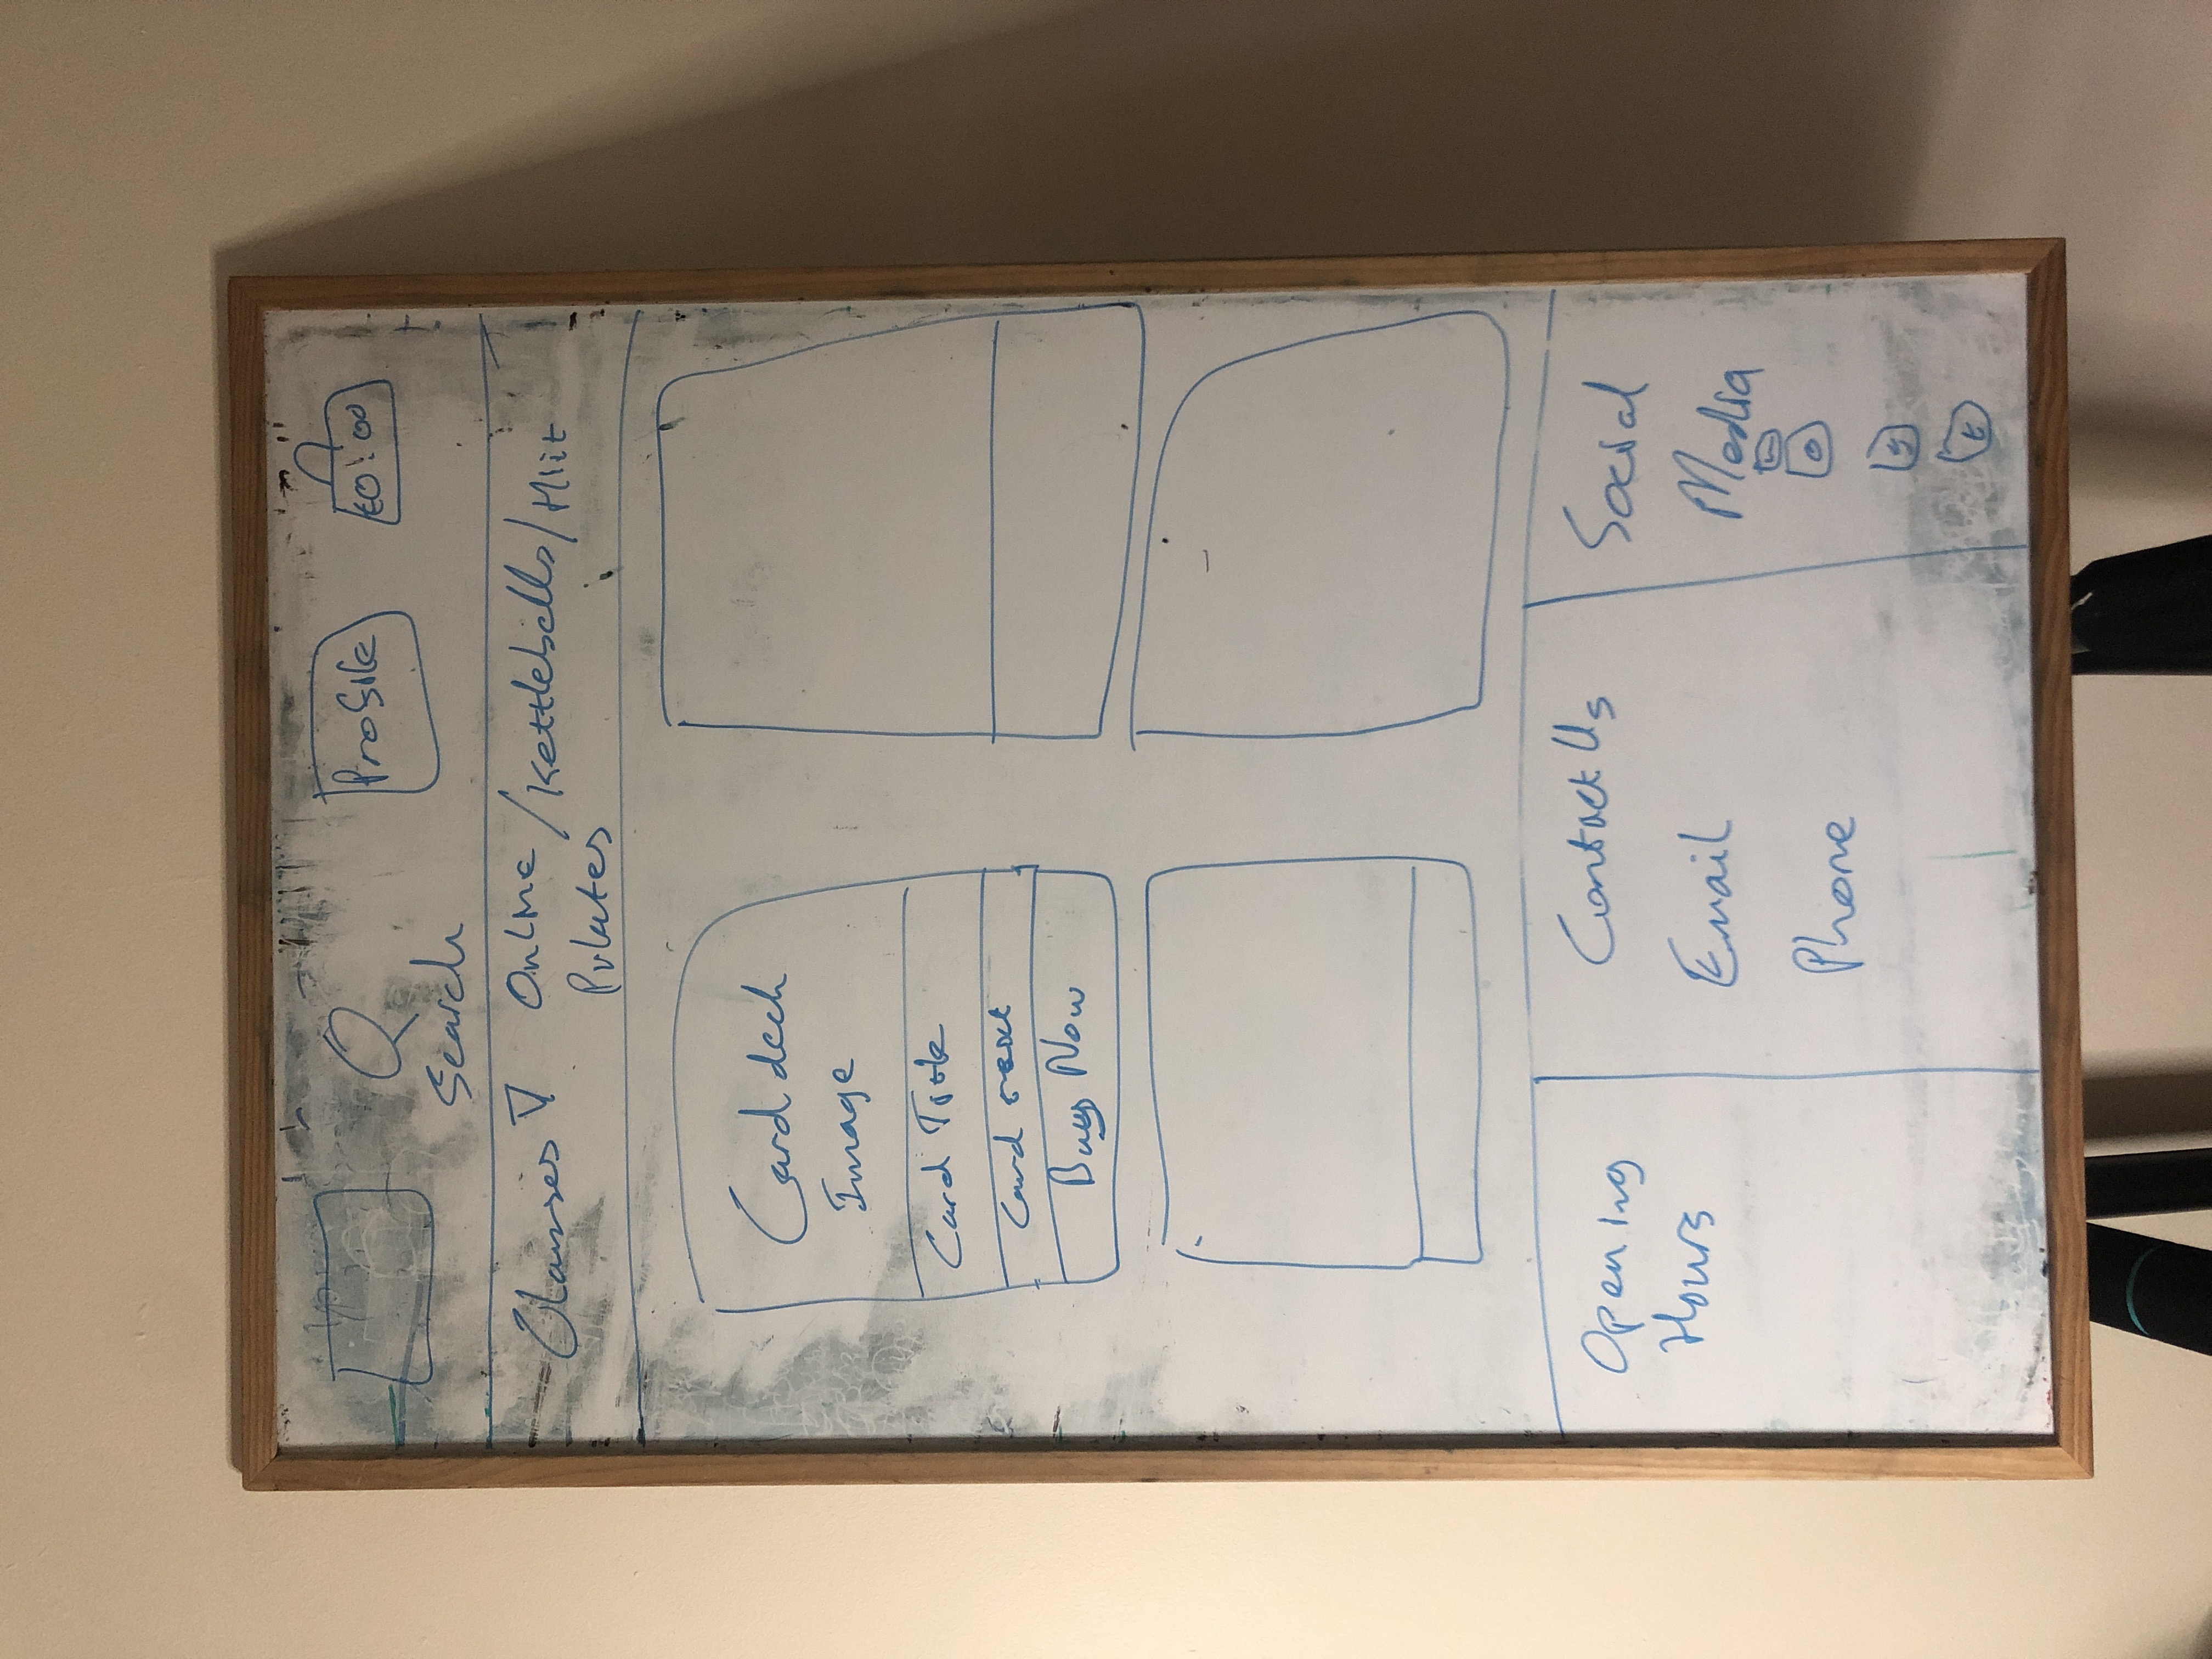 Profile
€0.00
Search
Classes ▽ Online / Kettlebells / Hiit
Pilates
Card deck
Image
Card Title
Card text
Buy Now
Opening
Hours
Contact Us
Email
Phone
Social
Media
t